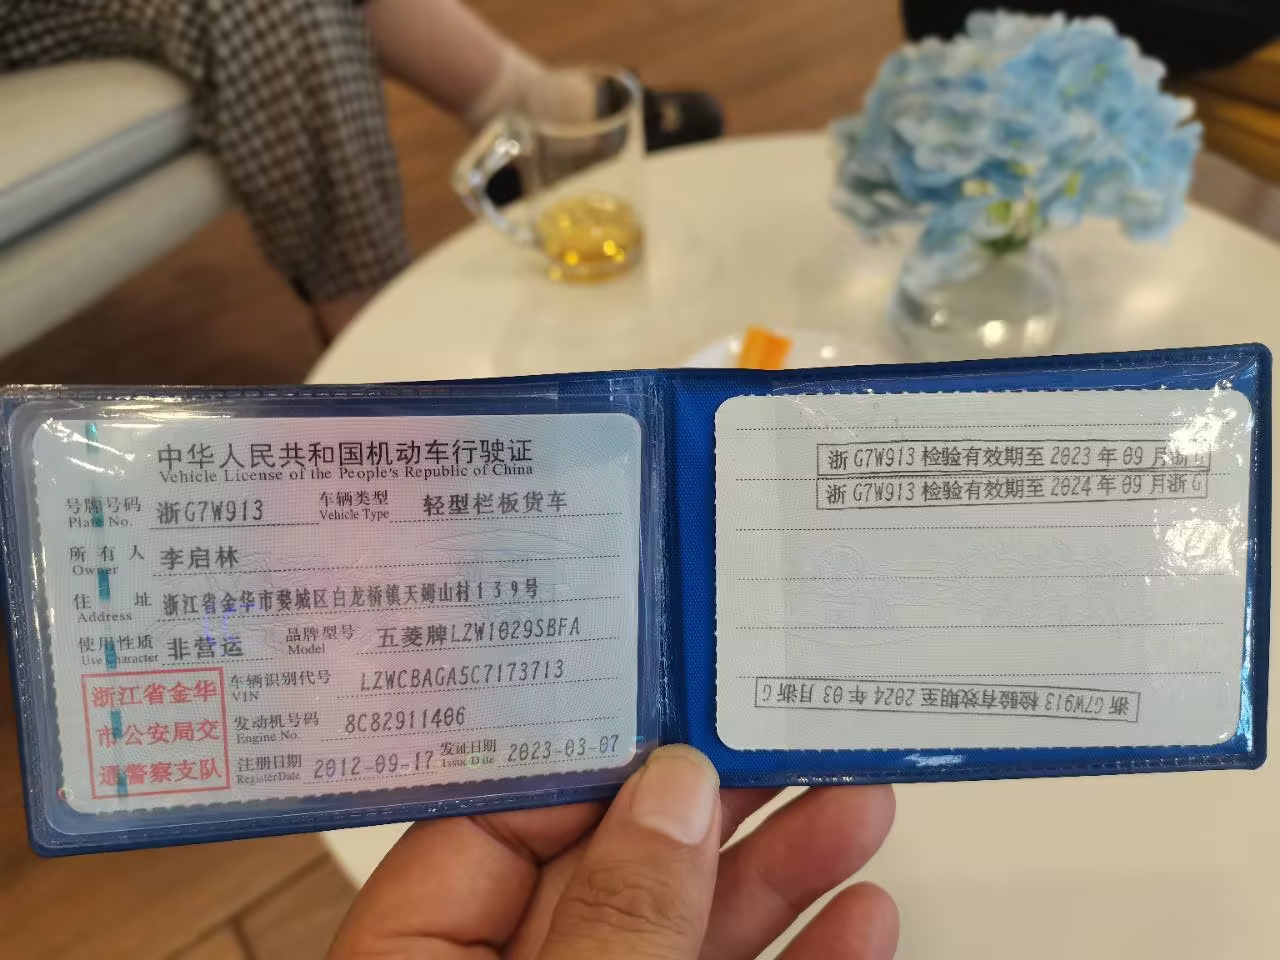 中华人民共和国机动车行驶证
Vehicle License of the People's Republic of China
号牌号码 浙G7W913 车辆类型 轻型栏板货车
Plate No. Vehicle Type
所有人 李启林
Owner
住址 浙江省金华市婺城区白龙桥镇天姆山村139号
Address
使用性质 非营运 品牌型号 五菱牌LZW1029SBFA
Use Character Model
浙江省金华
市公安局交
通警察支队
车辆识别代号 LZWCBAGA5C7173713
VIN
发动机号码 8C82911406
Engine No.
注册日期 2012-09-17 发证日期 2023-03-07
Register Date Issue Date
浙G7W913检验有效期至2023年09月浙G
浙G7W913检验有效期至2024年09月浙G
浙G7W913检验有效期至2024年03月浙G